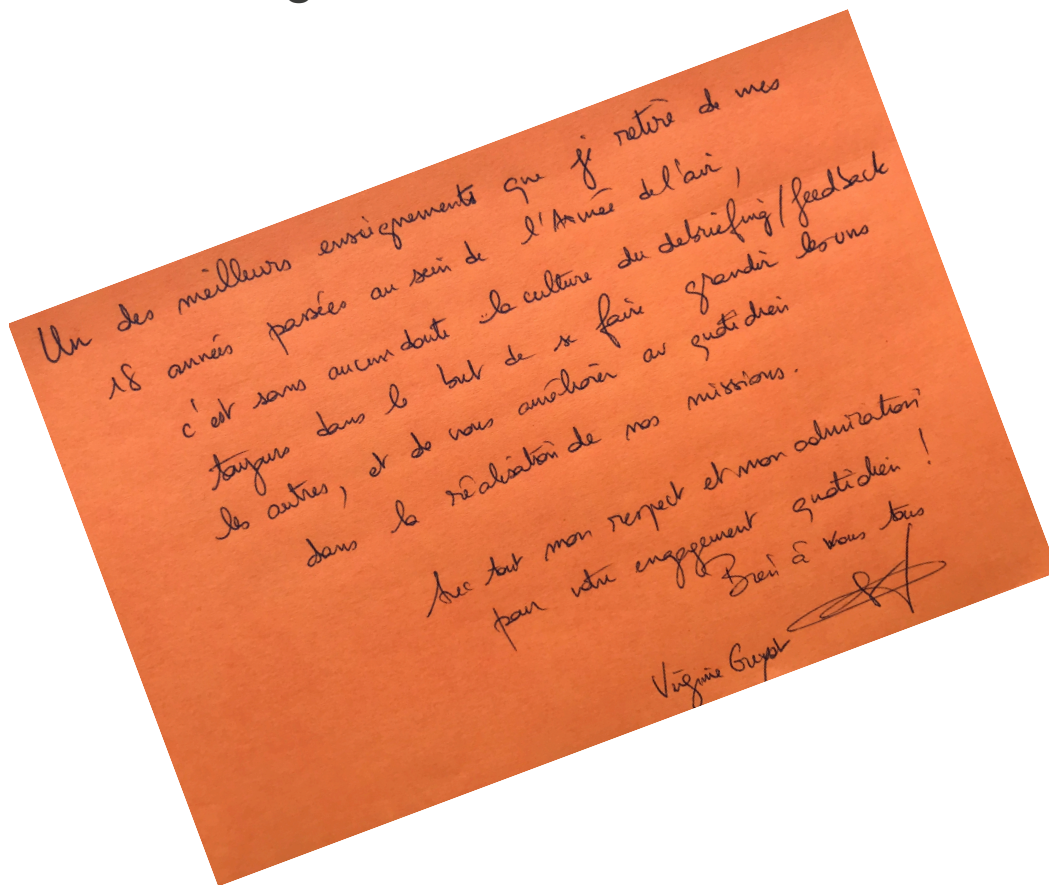 Un des meilleurs enseignements que je retire de mes
18 années passées au sein de l'Armée de l'air,
c'est sans aucun doute la culture du debriefing/feedback
toujours dans le but de se faire grandir les uns
les autres, et de nous améliorer au quotidien
dans la réalisation de nos missions.
Avec tout mon respect et mon admiration
pour votre engagement quotidien !
Bien à vous tous
Virginie Guyot